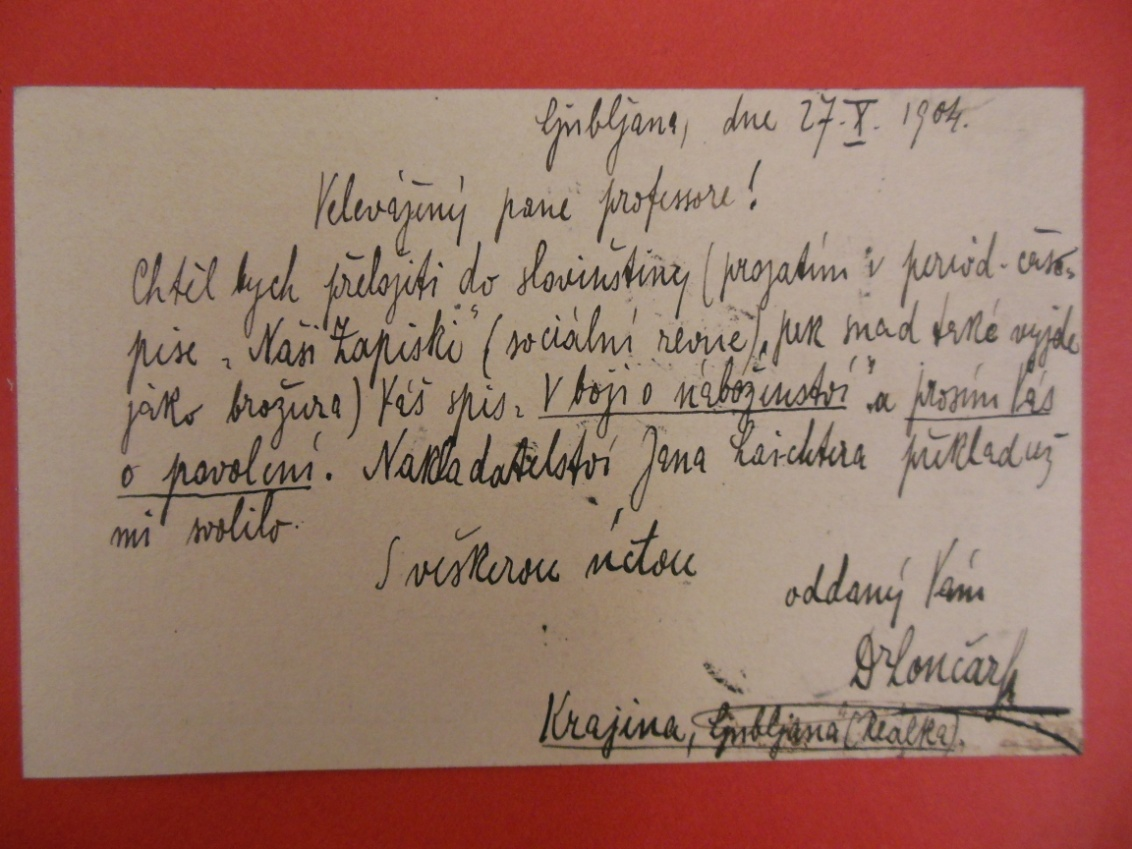 Ljubljana, dne 27. X. 1904.
Velevážený pane professore!
Chtěl bych přeložiti do slovinštiny (prozatím v period. časo-
pise „Naši Zapiski“ (sociální revue), pak snad také vyjde
jako brožura) Váš spis „V boji o náboženství“ a prosím Vás
o povolení. Nakladatelství Jana Laichtera překlad už
mi svolilo.
S veškerou úctou
oddaný Vám
Dr Lončar
Krajina, Ljubljana (Reálka).